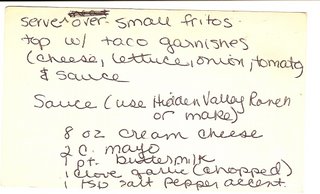 serve over small fritos.
top w/ taco garnishes
(cheese, lettuce, onion, tomato
& sauce
Sauce (use Hidden Valley Ranch
or make)
8 oz cream cheese
2 c. mayo
1 pt. buttermilk
1 clove garlic (chopped)
1 tsp salt pepper accent